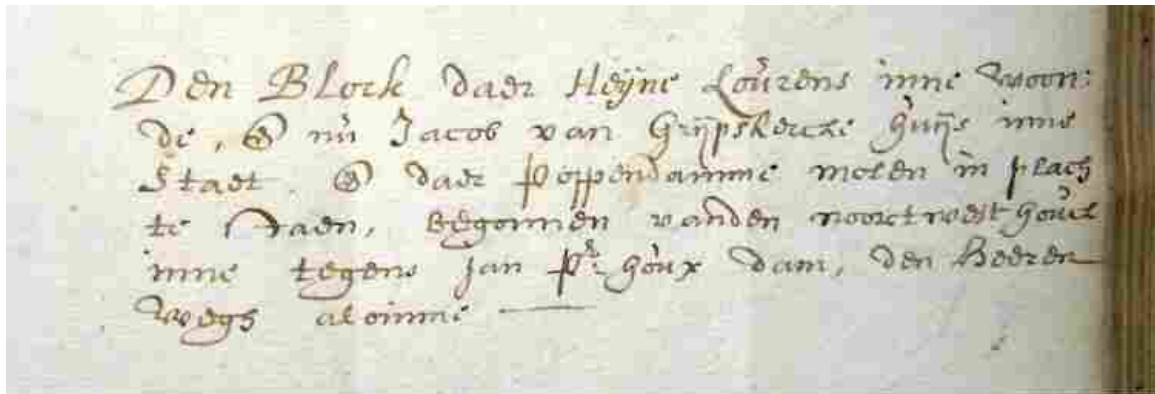 Den Block daer Heyne Lourens inne woon:
de, & nu Jacob van Grijpskercke huijs inne
Staet. & daer Poppendamme molen in plach
te staen, Begonnen vanden noortwest houck
inne tegens Jan Pr. houx dam, den Heeren
wegh alomme